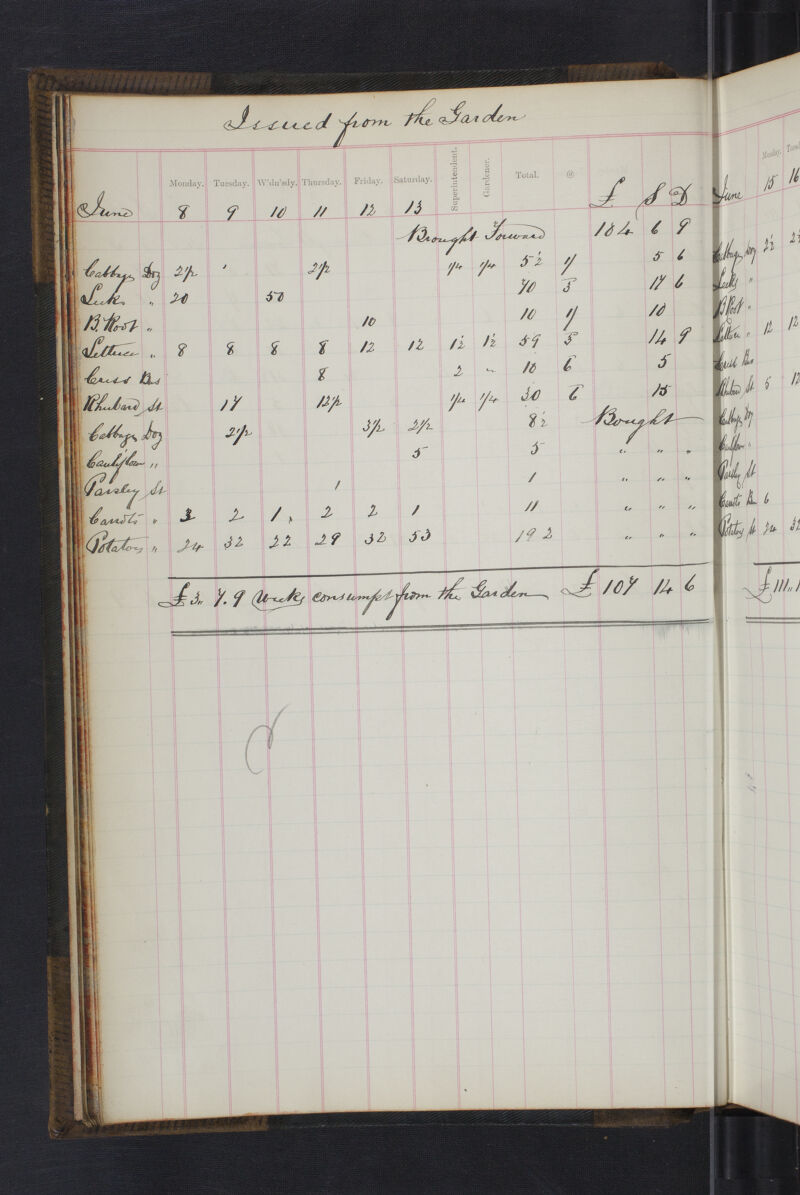 Issued from the Garden
Monday. Tuesday. W'dn'sd'y. Thursday. Friday. Saturday. Superintendent. Gardener. Total. @
June 8 9 10 11 12 13 £ S D
Brought Forward 104 6 9
Cabbages Doz 2½ ' 2½ ¼ ¼ 5½ 1/ 5 6
Leeks " 20 50 70 3 17 6
B. Root " 10 10 1/ 10
Lettuce " 8 8 8 8 12 12 1½ 1½ 59 3 14 9
Cress Bns 8 2 " 10 6 5
Rhubard St 17 12½ ¼ ¼ 30 6 15
Cabbages Doz 2½ 3½ 2½ 8½ Bought
Cauliflower " 5 5 " " "
Parsley St 1 1 " " "
Carrots " 3 2 1 2 2 1 11 " " "
Potatoes " 24 32 22 29 32 53 192 " " "
£3.. 7. 9 Weeks consumpt from the Garden £ 107 14 6
Monday.
June 15 16
Cabbages Doz 2½
Leeks "
B Root "
Lettuce " 12 12
Cress Bns
Rhubard St 5 12
Cabbages Doz
Cauliflower "
Parsley St
Carrots Bn 6
Potatoes St 24 32
£111..